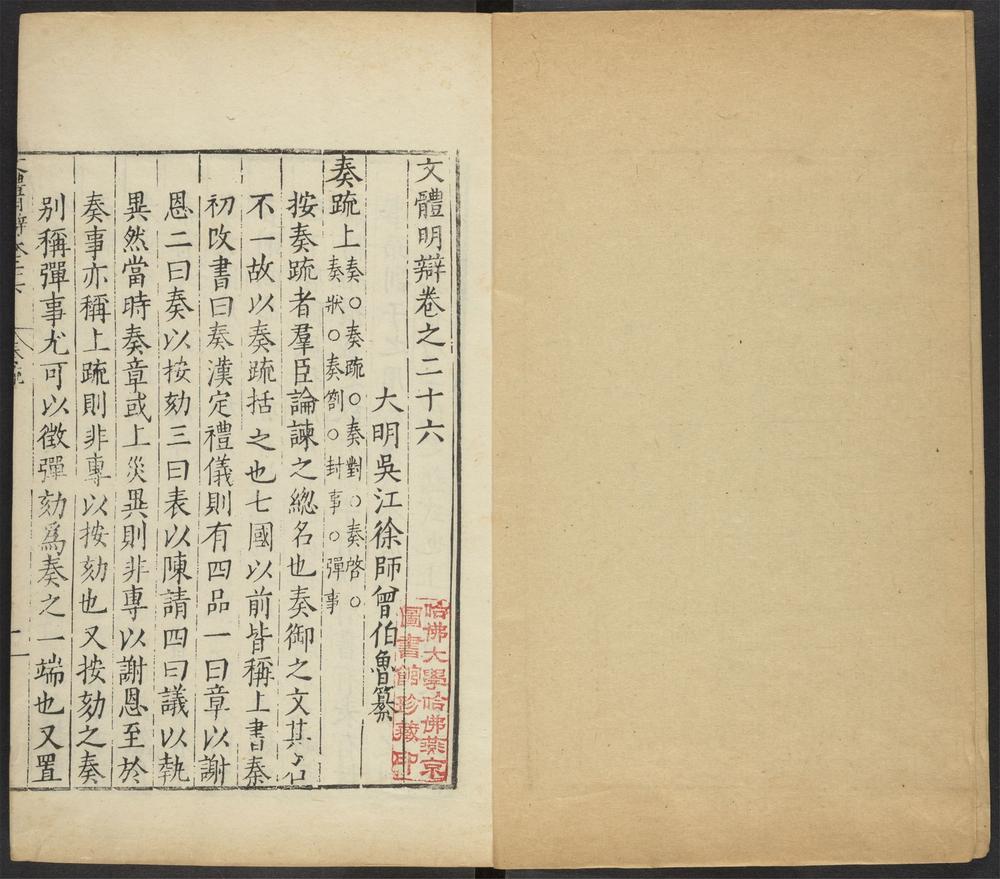 文體明辯卷之二十六
大明吳江徐師曾伯魯纂
奏疏上
奏○奏疏○奏對○奏啓○
奏狀○奏劄○封事○彈事
按奏疏者羣臣論諫之總名也奏御之文其名
不一故以奏疏括之也七國以前皆稱上書秦
初改書曰奏漢定禮儀則有四品一曰章以謝
恩二曰奏以按劾三曰表以陳請四曰議以執
異然當時奏章或上災異則非專以謝恩至於
奏事亦稱上疏則非專以按劾也又按劾之奏
别稱彈事尤可以徵彈劾爲奏之一端也又置
哈佛大學哈佛燕京
圖書館珍藏印